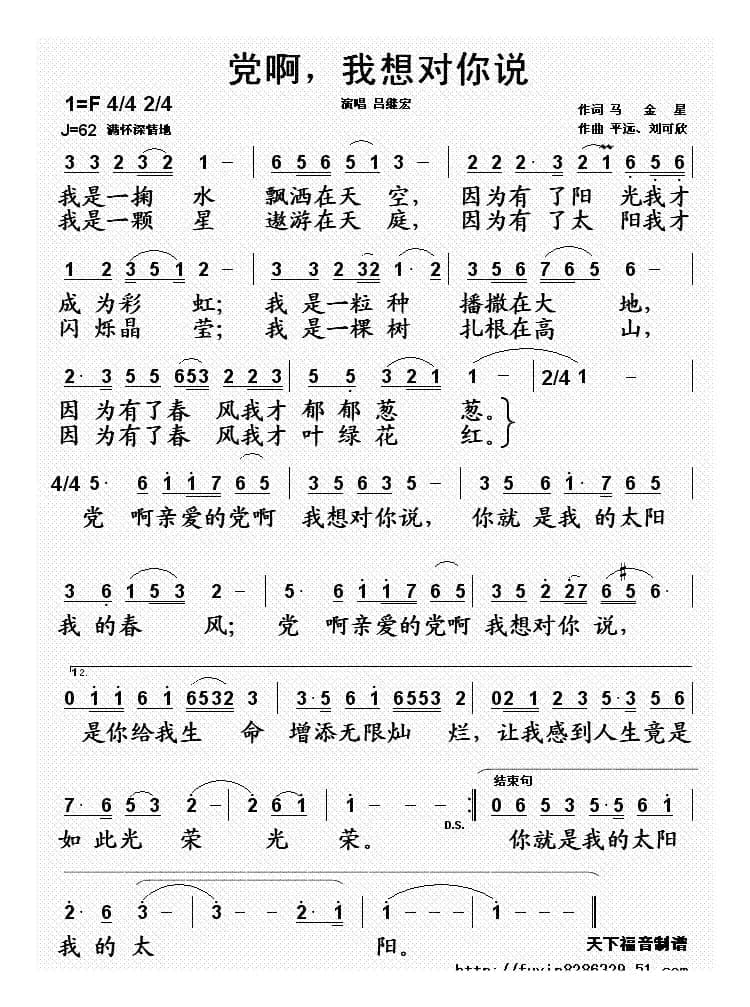 党啊，我想对你说
1=F 4/4 2/4
演唱 吕继宏
作词 马金星
J=62 满怀深情地
作曲 平远、刘可欣
3 3 2 3 2 1 – | 6 5 6 5 1 3 – | 2 2 2· 3 2 1 6 5 6
我是一掬 水 飘洒在天 空， 因为有 了阳 光我才
我是一颗 星 遨游在天 庭， 因为有 了太 阳我才
1 2 3 5 1 2 – | 3 3 2 32 1· 2 | 3 5 6 7 6 5 6 –
成 为彩 虹； 我 是一粒 种 播撒在大 地，
闪 烁晶 莹； 我 是一棵 树 扎根在高 山，
2· 3 5 5 653 2 2 3 | 5 5 3 2 1 1 – | 2/4 1 –
因 为有了春 风我才 郁 郁葱 葱。
因 为有了春 风我才 叶 绿 花 红。
4/4 5· 6 1 1 7 6 5 | 3 5 6 3 5 – | 3 5 6 1· 7 6 5
党 啊亲爱的党啊 我想对你说， 你就 是我 的太阳
3 6 1 5 3 2 – | 5· 6 1 1 7 6 5 | 3 5 2 27 6 #5 6·
我 的春 风； 党 啊亲爱的党啊 我想对你 说，
1 2.
0 1 1 6 1 6532 3 | 3· 5 6 1 6553 2 | 02 1 2 3 5· 3 6 5
是你给我生 命 增添无限灿 烂， 让我感到人生竟是
结束句
7· 6 5 3 2 – | 2 – 2 6 1 | 1 – – – :‖ 0 6 5 3 5· 5 6 1
D.S.
如 此光 荣 光 荣。 你就是我的太阳
2· 6 3 – | 3 – 2· 1 | 1 – – – | 1 – – – ‖
我 的 太 阳。
天下福音制谱
http://fuyin8286329.51.com